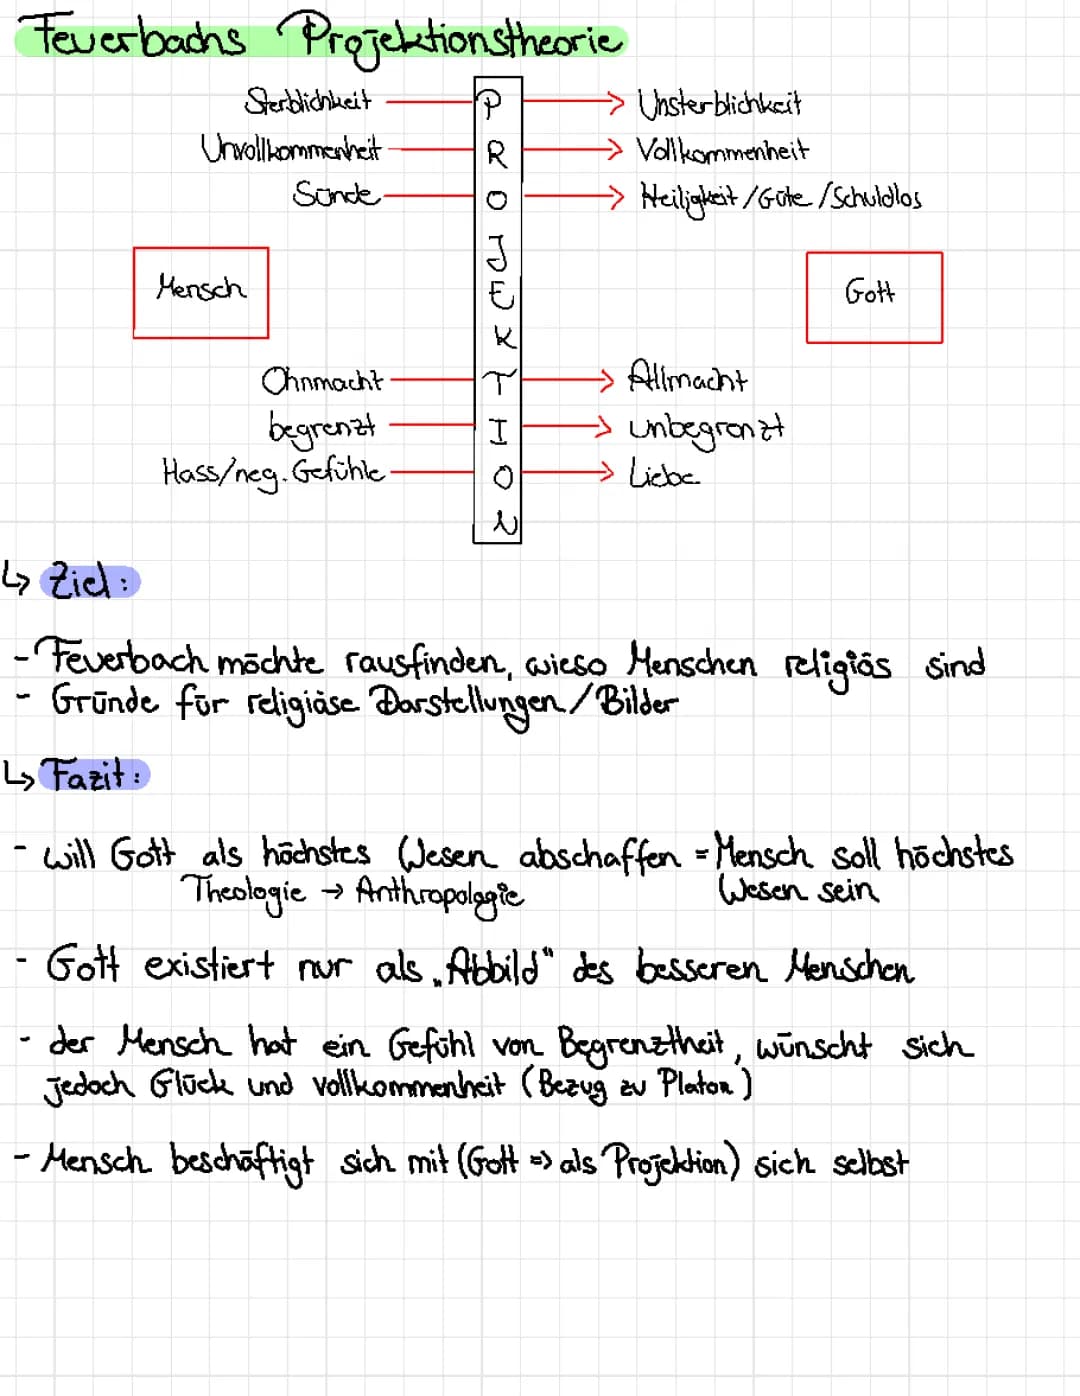 Feuerbachs Projektionstheorie
Sterblichkeit → Unsterblichkeit
Unvollkommenheit → Vollkommenheit
Sünde → Heiligkeit/Güte/Schuldlos
PROJEKTION
Mensch
Gott
Ohnmacht → Allmacht
begrenzt → unbegrenzt
Hass/neg. Gefühle → Liebe
↳ Ziel:
- Feuerbach möchte rausfinden, wieso Menschen religiös sind
- Gründe für religiöse Darstellungen/Bilder
↳ Fazit:
- will Gott als höchstes Wesen abschaffen = Mensch soll höchstes
Theologie → Anthropologie Wesen sein
- Gott existiert nur als „Abbild" des besseren Menschen
- der Mensch hat ein Gefühl von Begrenztheit, wünscht sich
jedoch Glück und vollkommenheit (Bezug zu Platon)
- Mensch beschäftigt sich mit (Gott => als Projektion) sich selbst